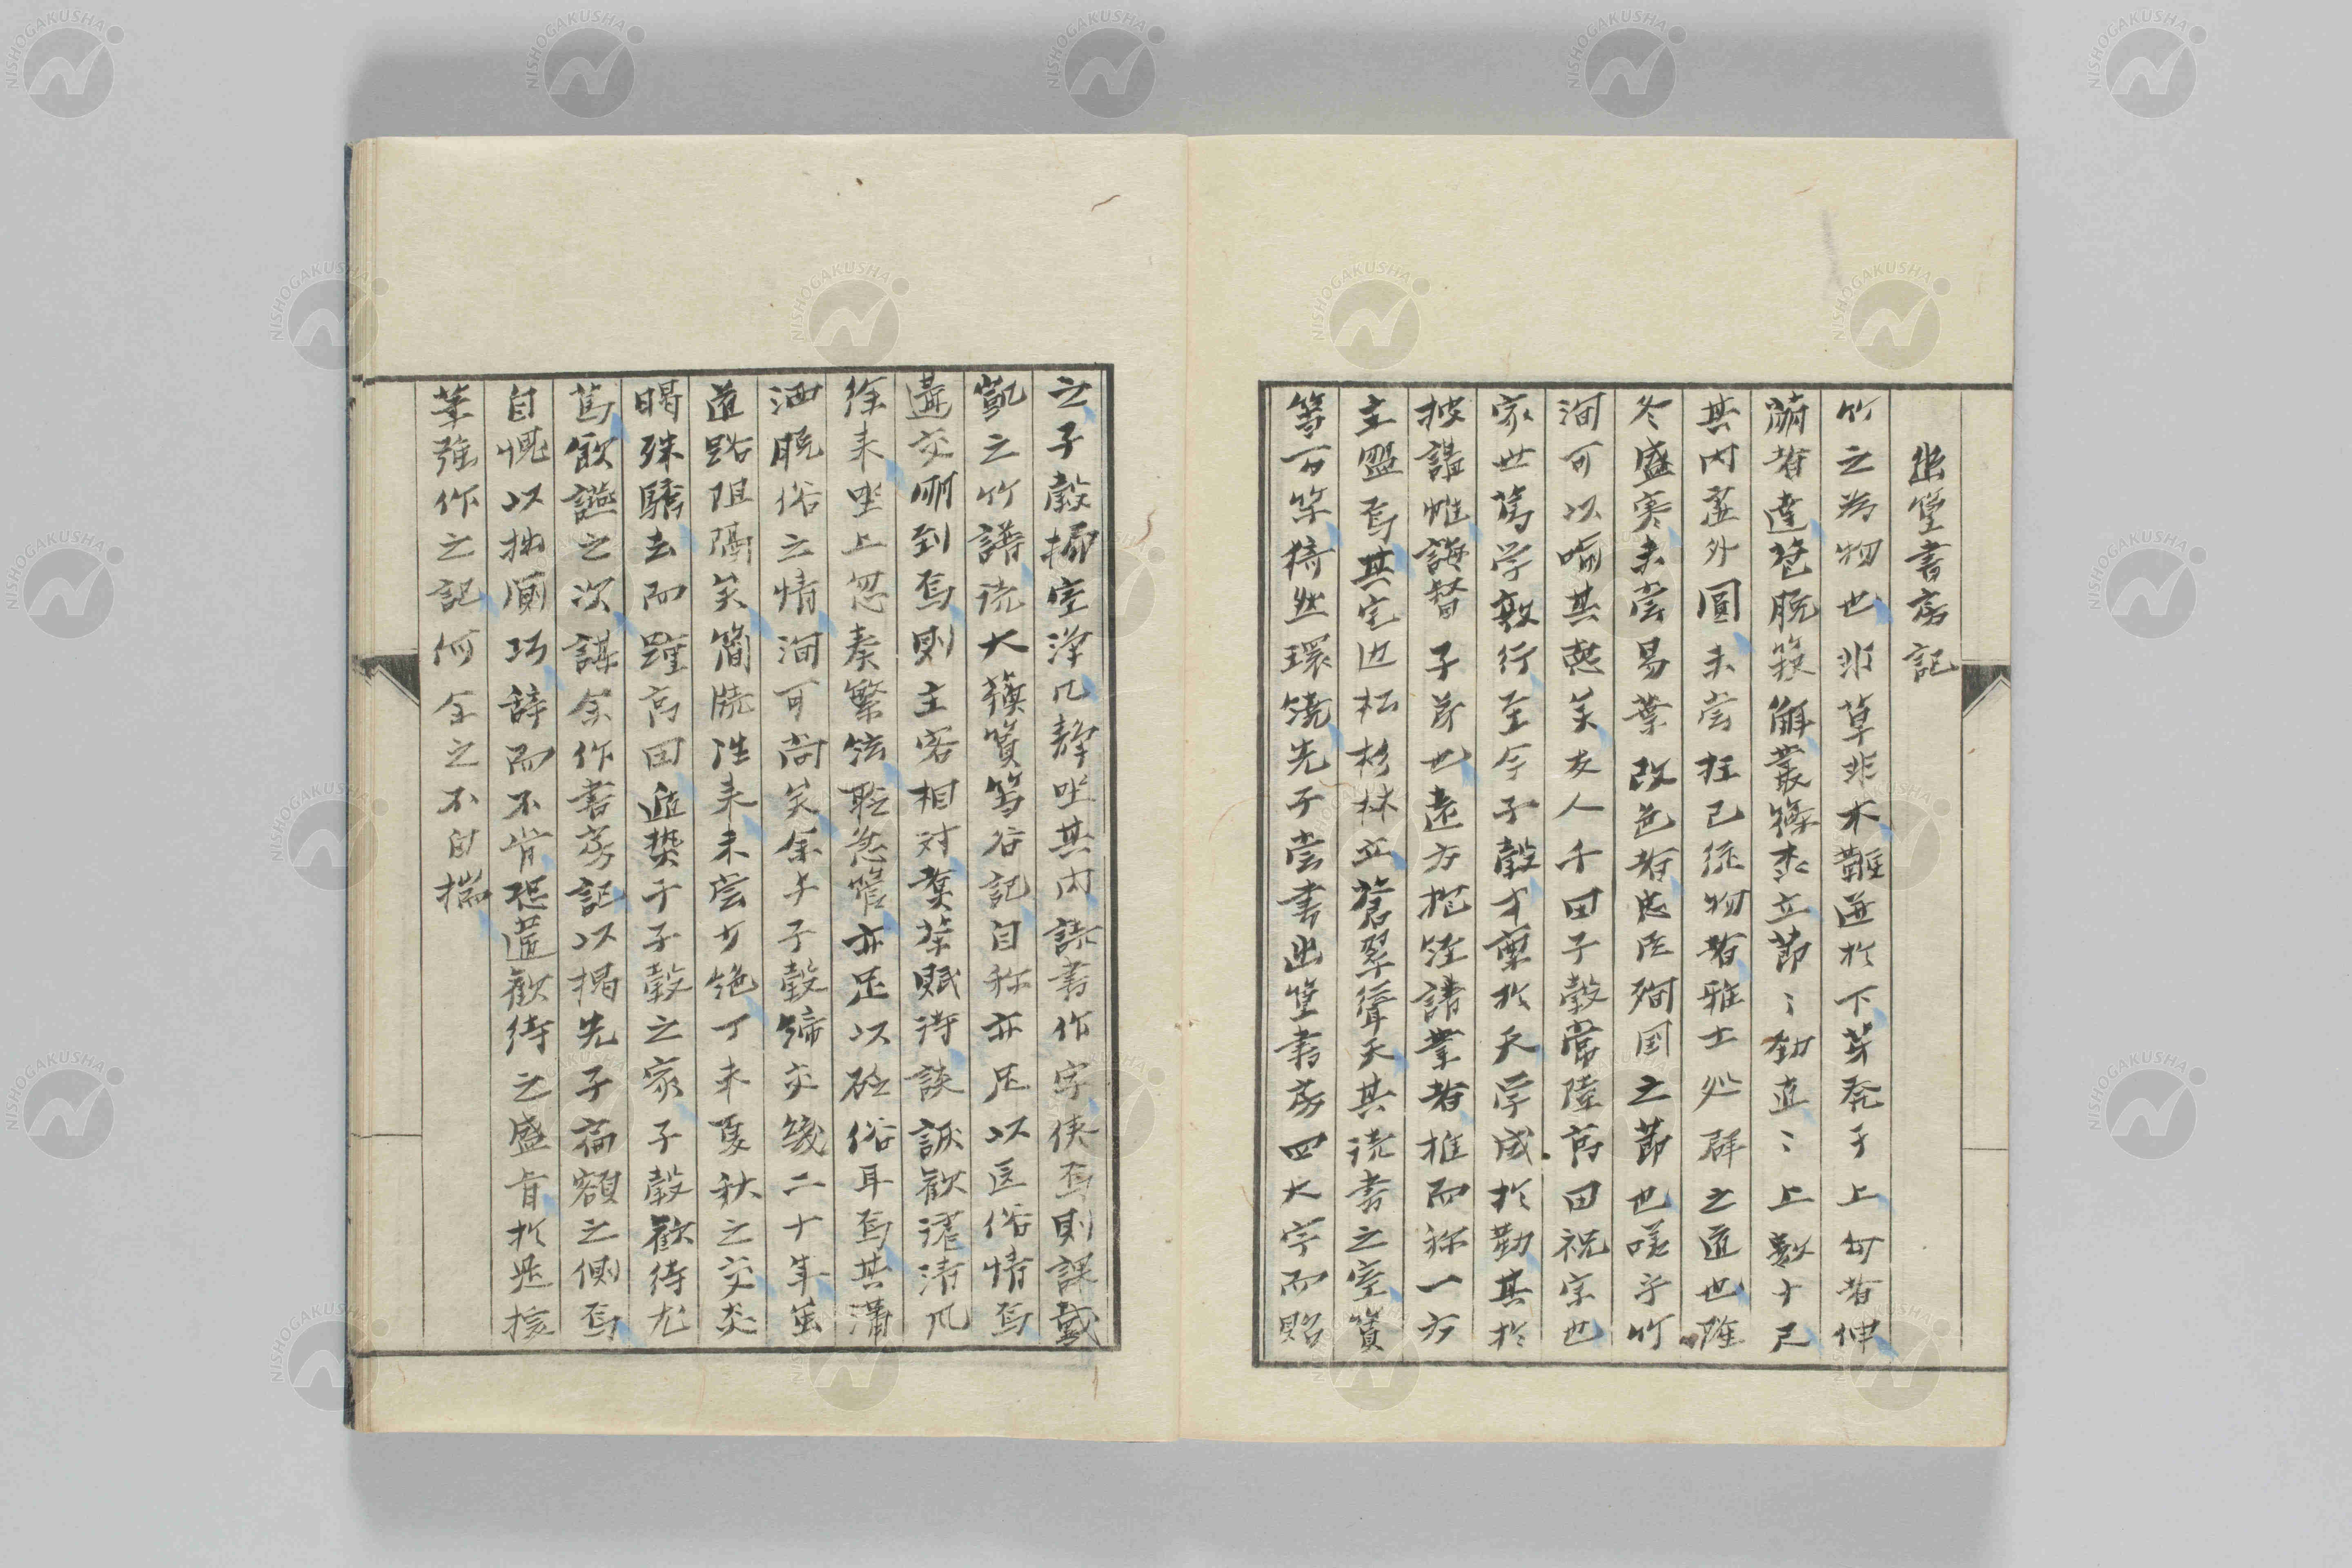 幽篁書房記
竹之為物也非草非木難迸於下芽発于上勾者伸
萠者達苞脱籜解叢篠森立節〻勁直〻上数十尺
其内虚外圓未嘗枉己徇物者雅士処群之道也隆
冬盛寒未嘗易葉改色者忠臣殉国之節也嗟乎竹
洵可以喩其徳矣友人千田子穀常陸高田祝宗也
家世篤学敦行至今子穀才稟於天学成於勤其於
披講帷誨督子弟也遠方抱経請業者推而称一方
主盟焉其宅辺松杉林立蒼翠聳天其読書之室篔
簹万竿猗然環繞先子嘗書幽篁書房四大字而貽
之子穀掃室浄几静坐其内読書作字倦焉則課戴
凱之竹譜読大蘓篔簹谷記自称亦足以医俗情焉
遠交朋到焉則主客相対煮茶賦詩談詼歓洽清風
徐来坐上忽奏繁絃聒急管亦足以砭俗耳焉其瀟
洒脱俗之情洵可尚矣余与子穀締交幾二十年虽
道路阻隔矣簡牘往来未嘗少絶丁未夏秋之交炎
暍殊驕去而躔高田遊獘于子穀之家子穀歓待尤
篤飲讌之次謀余作書房記以掲先子扁額之側焉
自愧以拙厠巧辞而不肯恐遺歓待之盛旨於是援
筆強作之記何余之不自揣